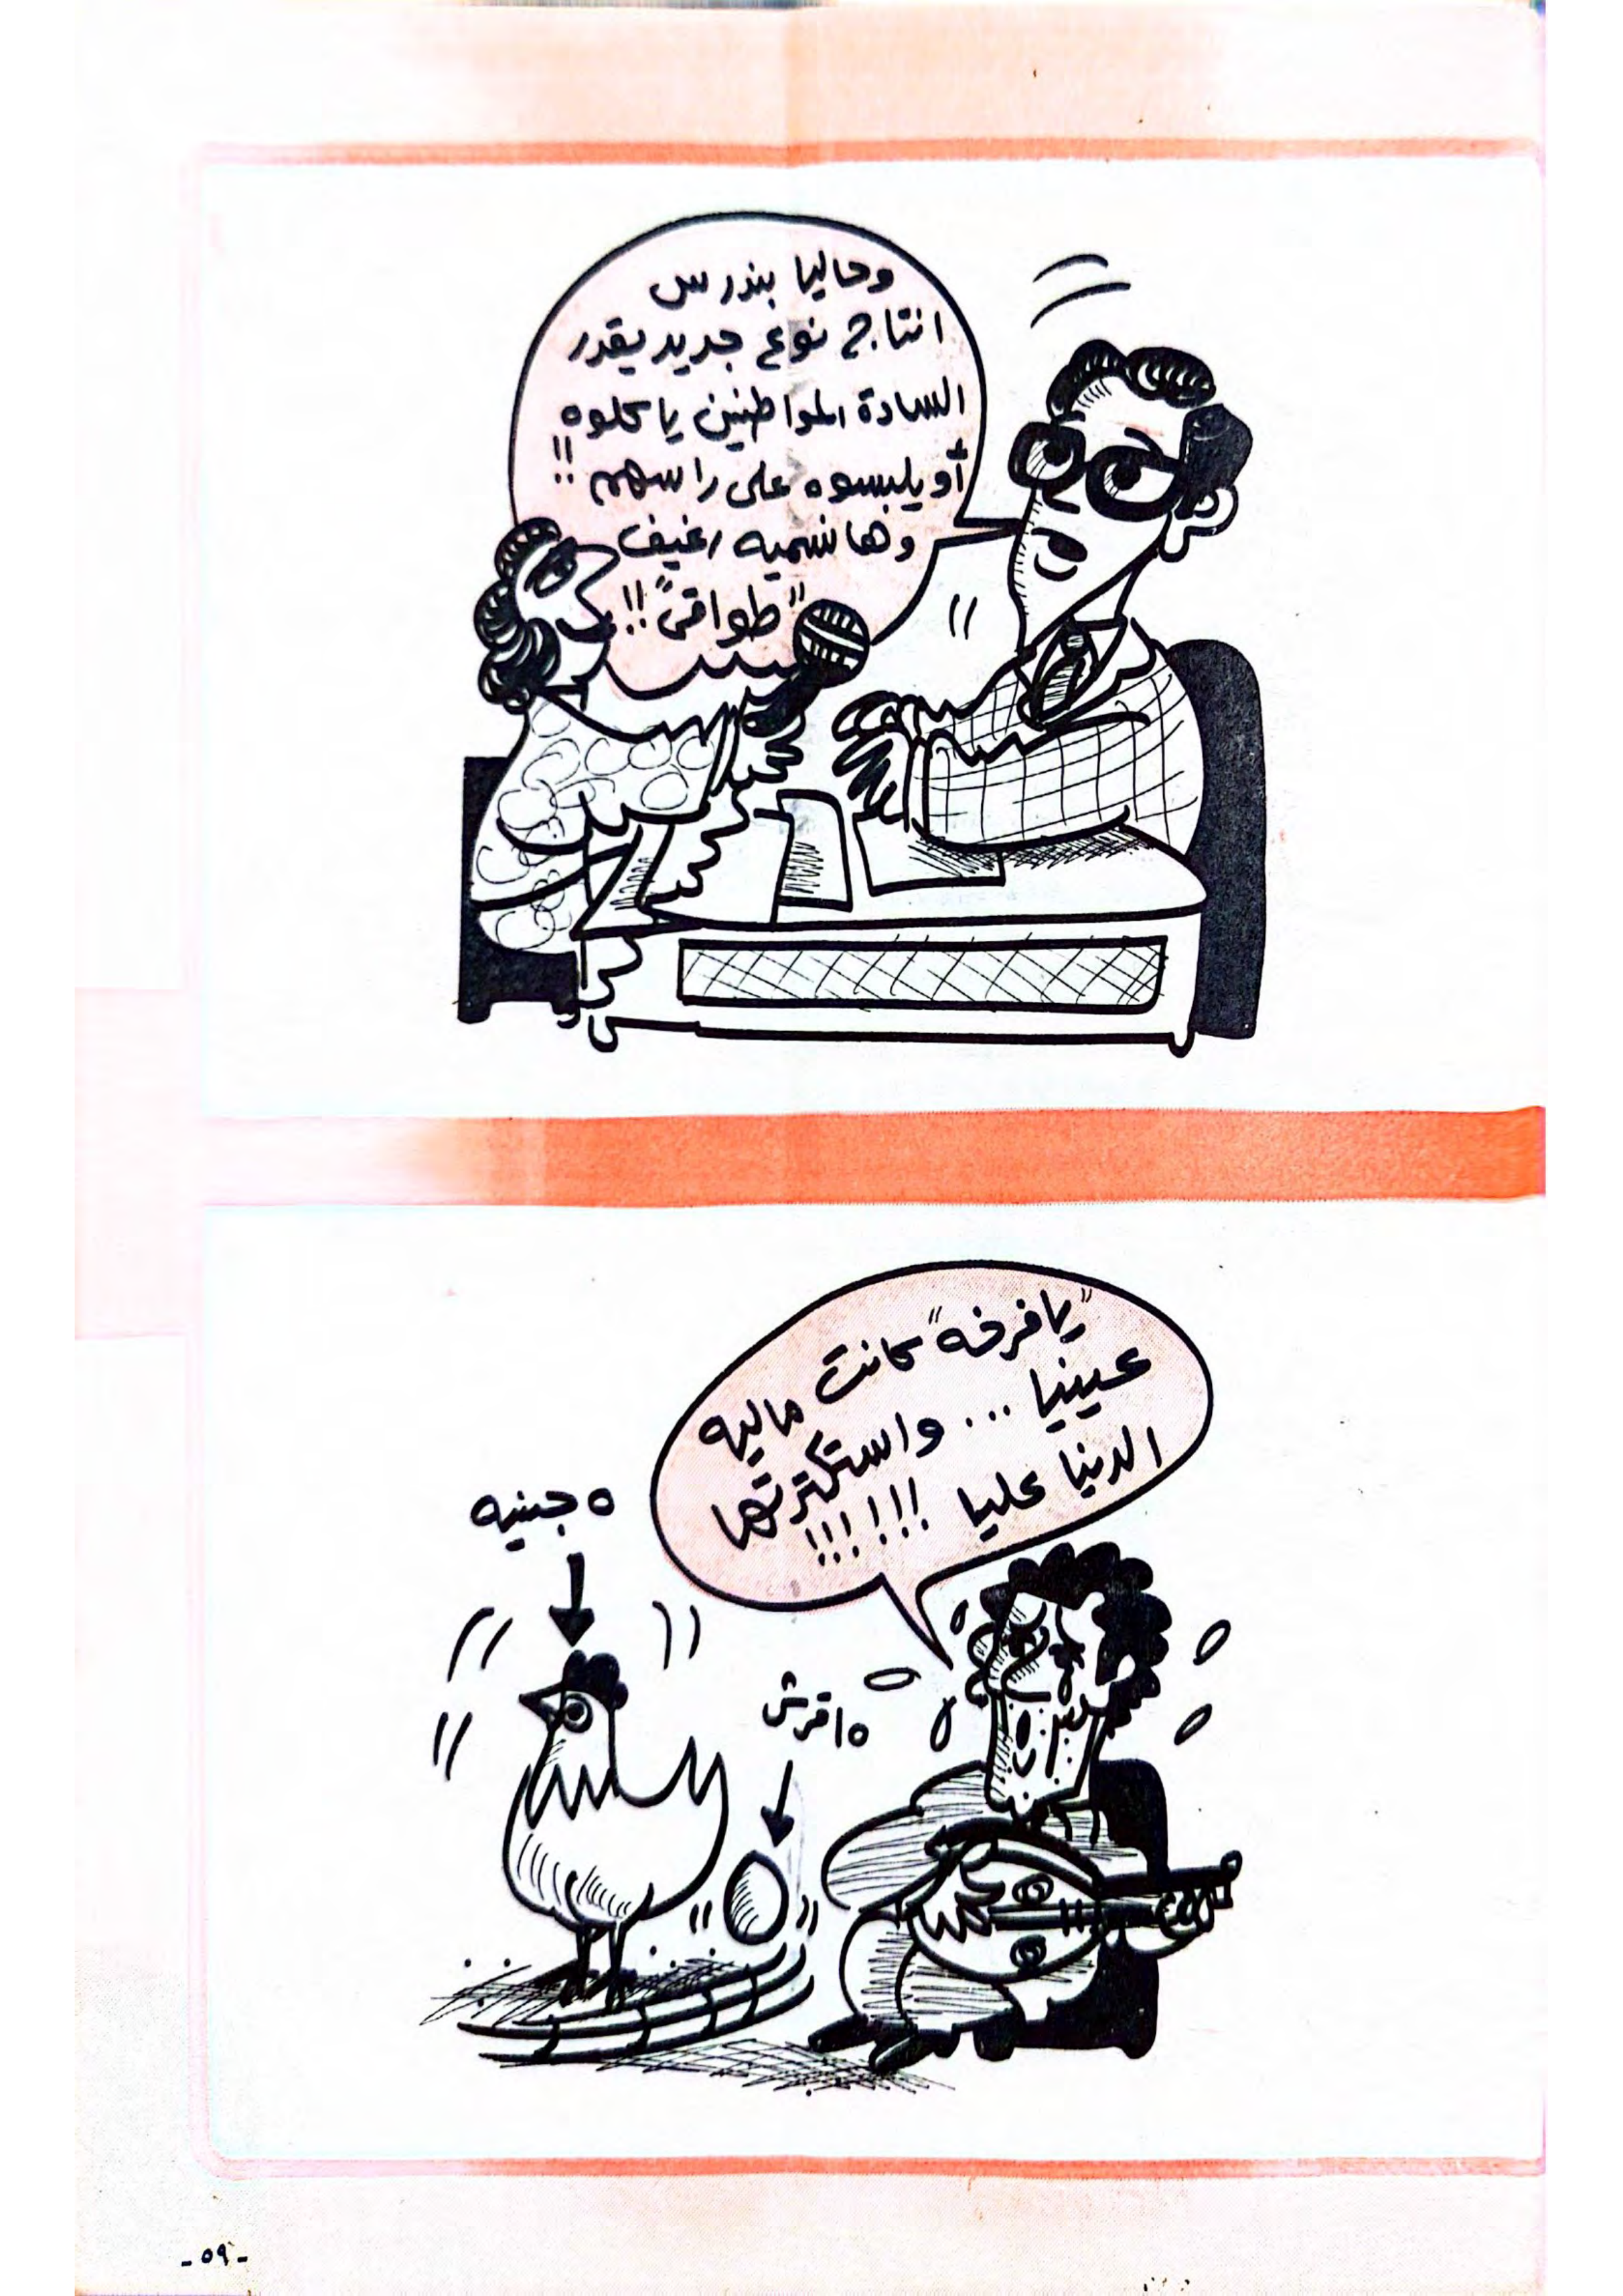 وحاليا بندرس
انتاج نوع جديد يقدر
السادة المواطنين ياكلوه
أو يلبسوه على راسهم !!
وها نسميه رغيف
"طواقى" !!
"يا فرخه" كانت ماليه
عينيا ... واستكترتها
الدنيا عليا !!!!!!
٥ جنيه
١٥ قرش
- ٥٩ -